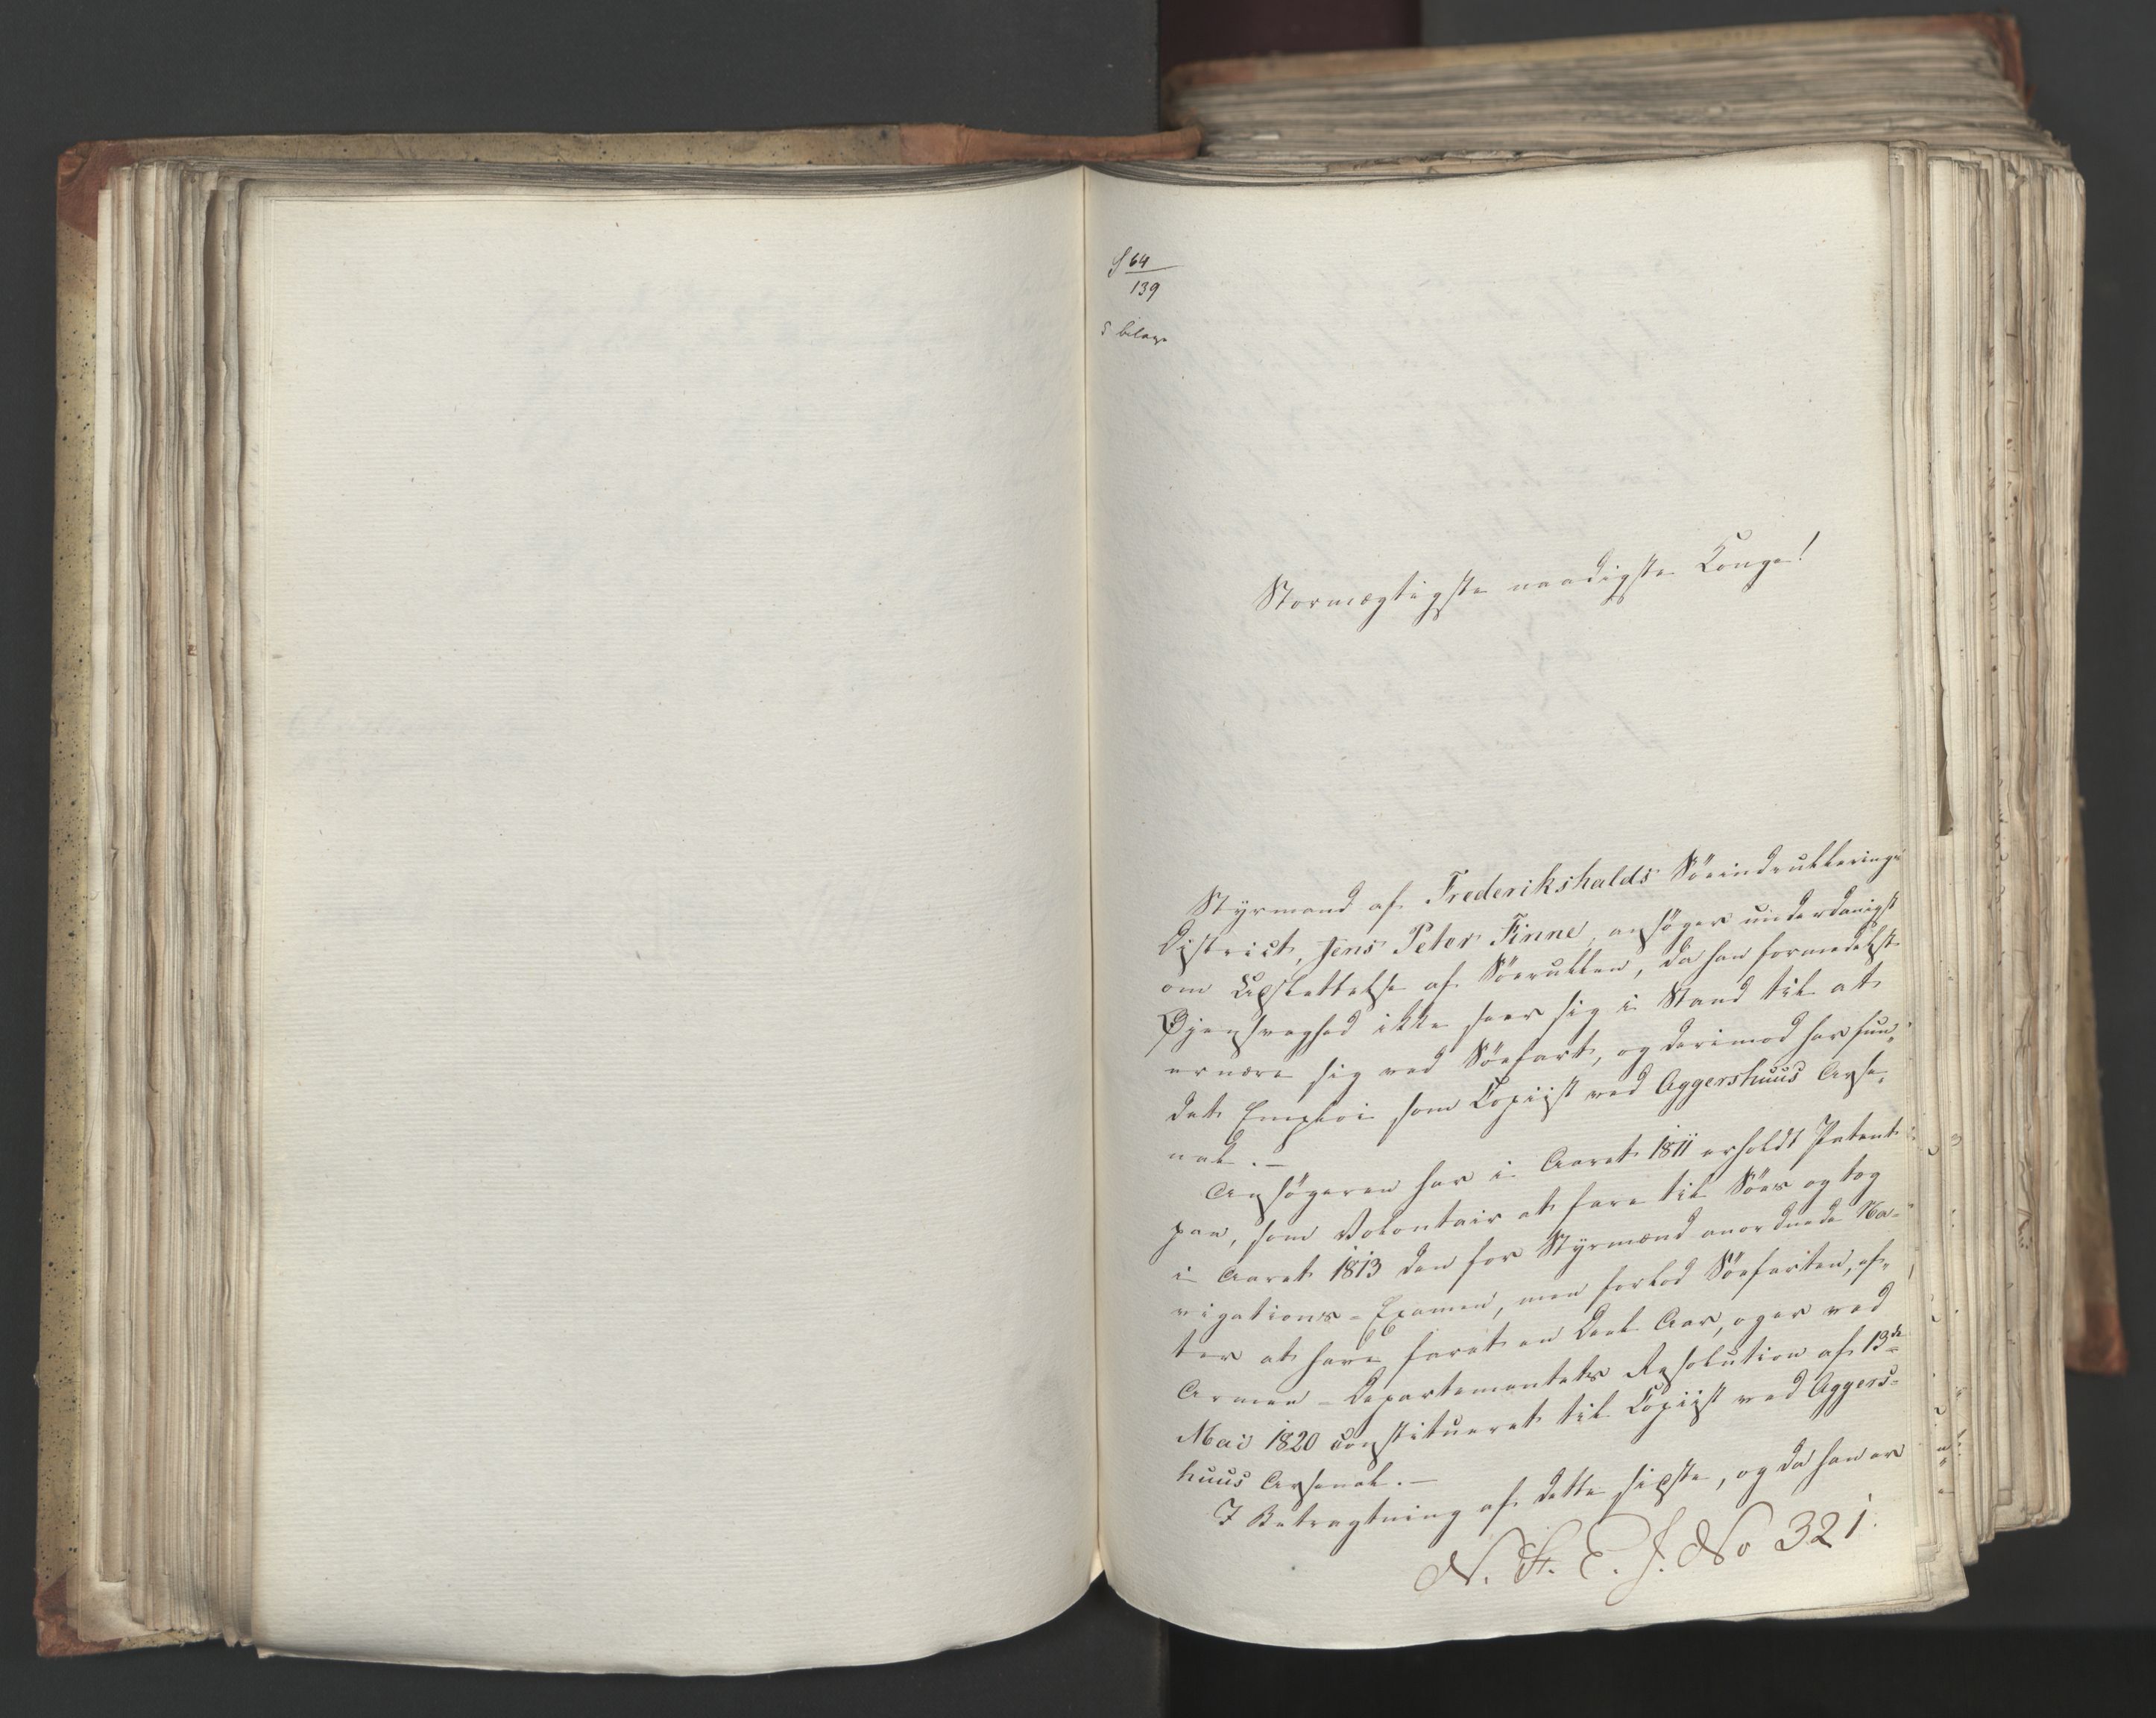 S 64
139
5 bilage
Stormægtigste naadigste Konge!
Styrmand af Frederikshalds Söeindrullerings
District, Jens Peter Finne, ansöger underdanigst
om Udslettelse af Söerullen, da han formedelst
Øjensvaghed ikke seer sig i Stand til at
ernære sig ved Söefart, og derimod har fun-
det Emploi som Copiist ved Aggershuus Arse-
nal. -
Ansögeren har i Aaret 1811 erholdt Patent
paa, som Volontair at fare til Söes og tog
i Aaret 1813 den for Styrmænd anordnede Na-
vigations-Examen, men forlod Söefarten, ef-
ter at have faret en Deel Aar, og er ved
Armee-Departementets Resolution af 13de
Mai 1820 constitueret til Copiist ved Aggers-
huus Arsenal. -
I Betragtning af dette sidste, og da han er
N. St. E. J. No 321.